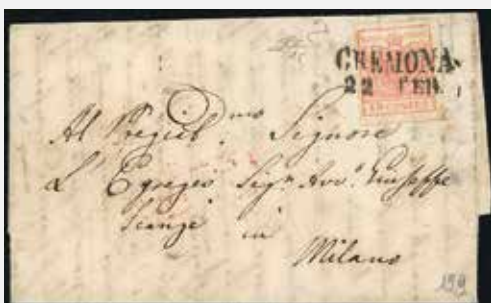 CREMONA
22 FEB.
Al Pregiat.mo Signore
L'Egregio Sigr Avvo Giuseppe
in
Milano
199